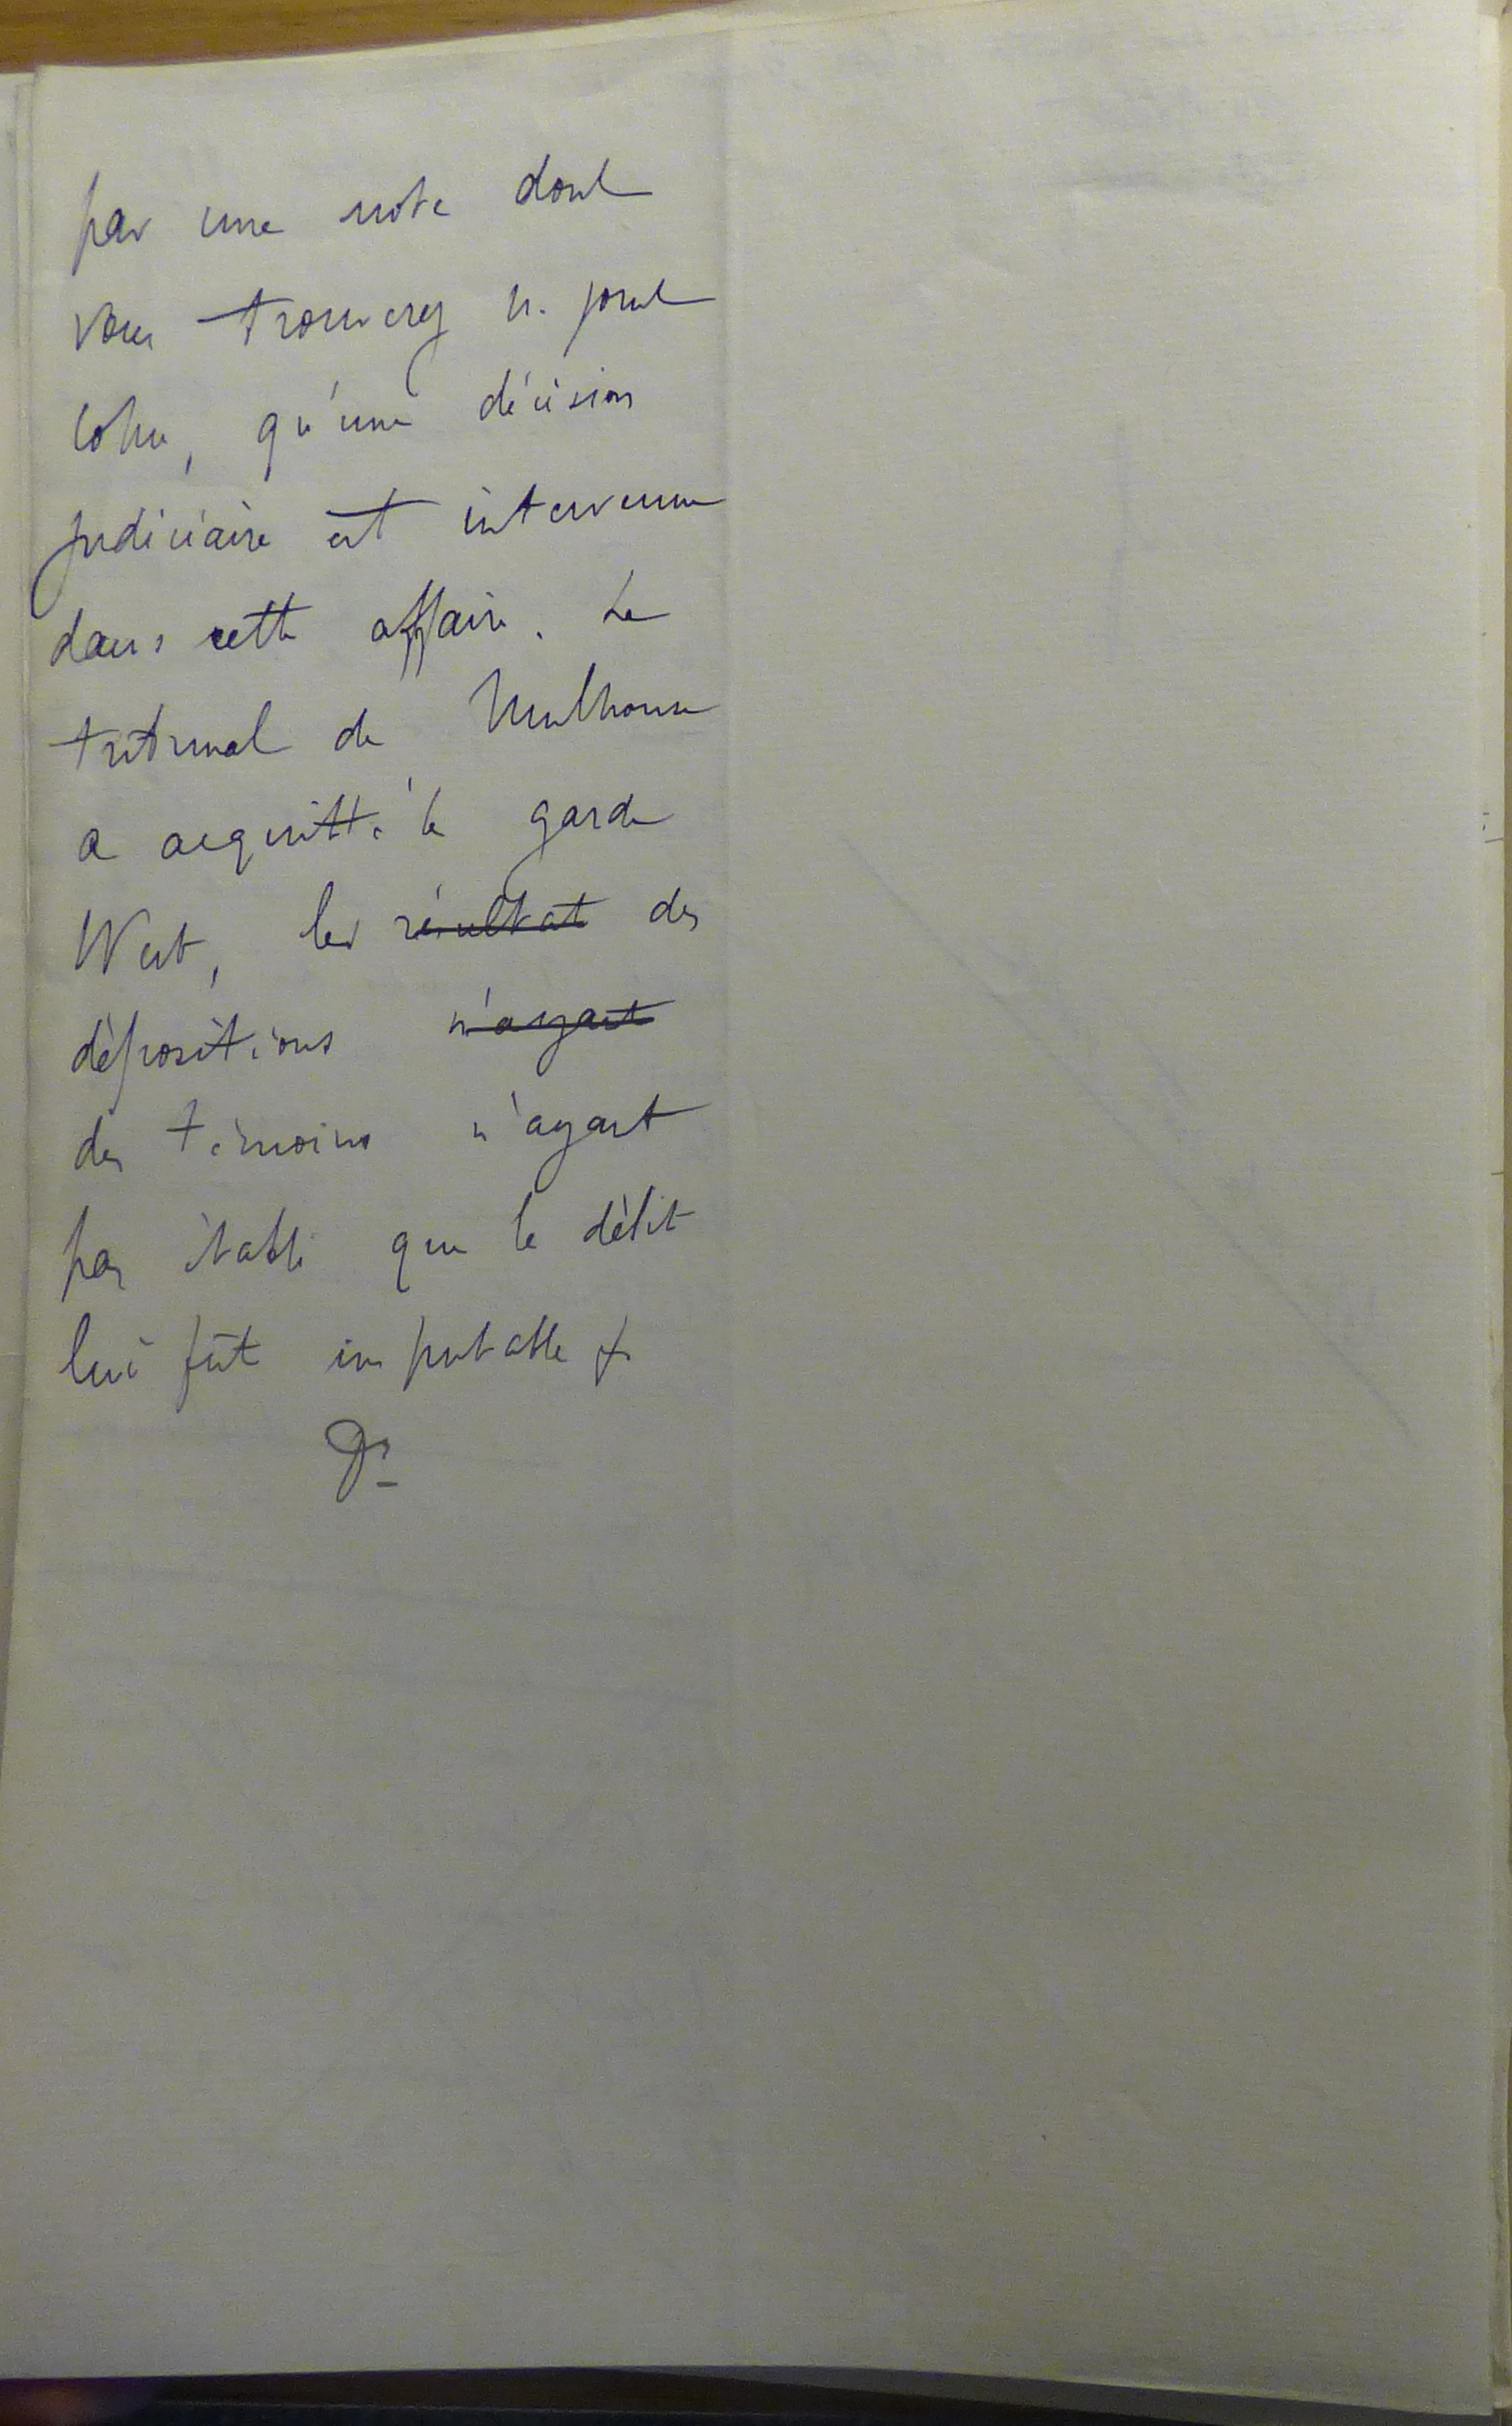 par une note dont
vous trouverez ci-joint
copie, qu'une décision
judiciaire est intervenue
dans cette affaire. Le
tribunal de Mulhouse
a acquitté le garde
West, les résultat des
dépositions n'ayant
des témoins n'ayant
pas établi que le délit
lui fût imputable